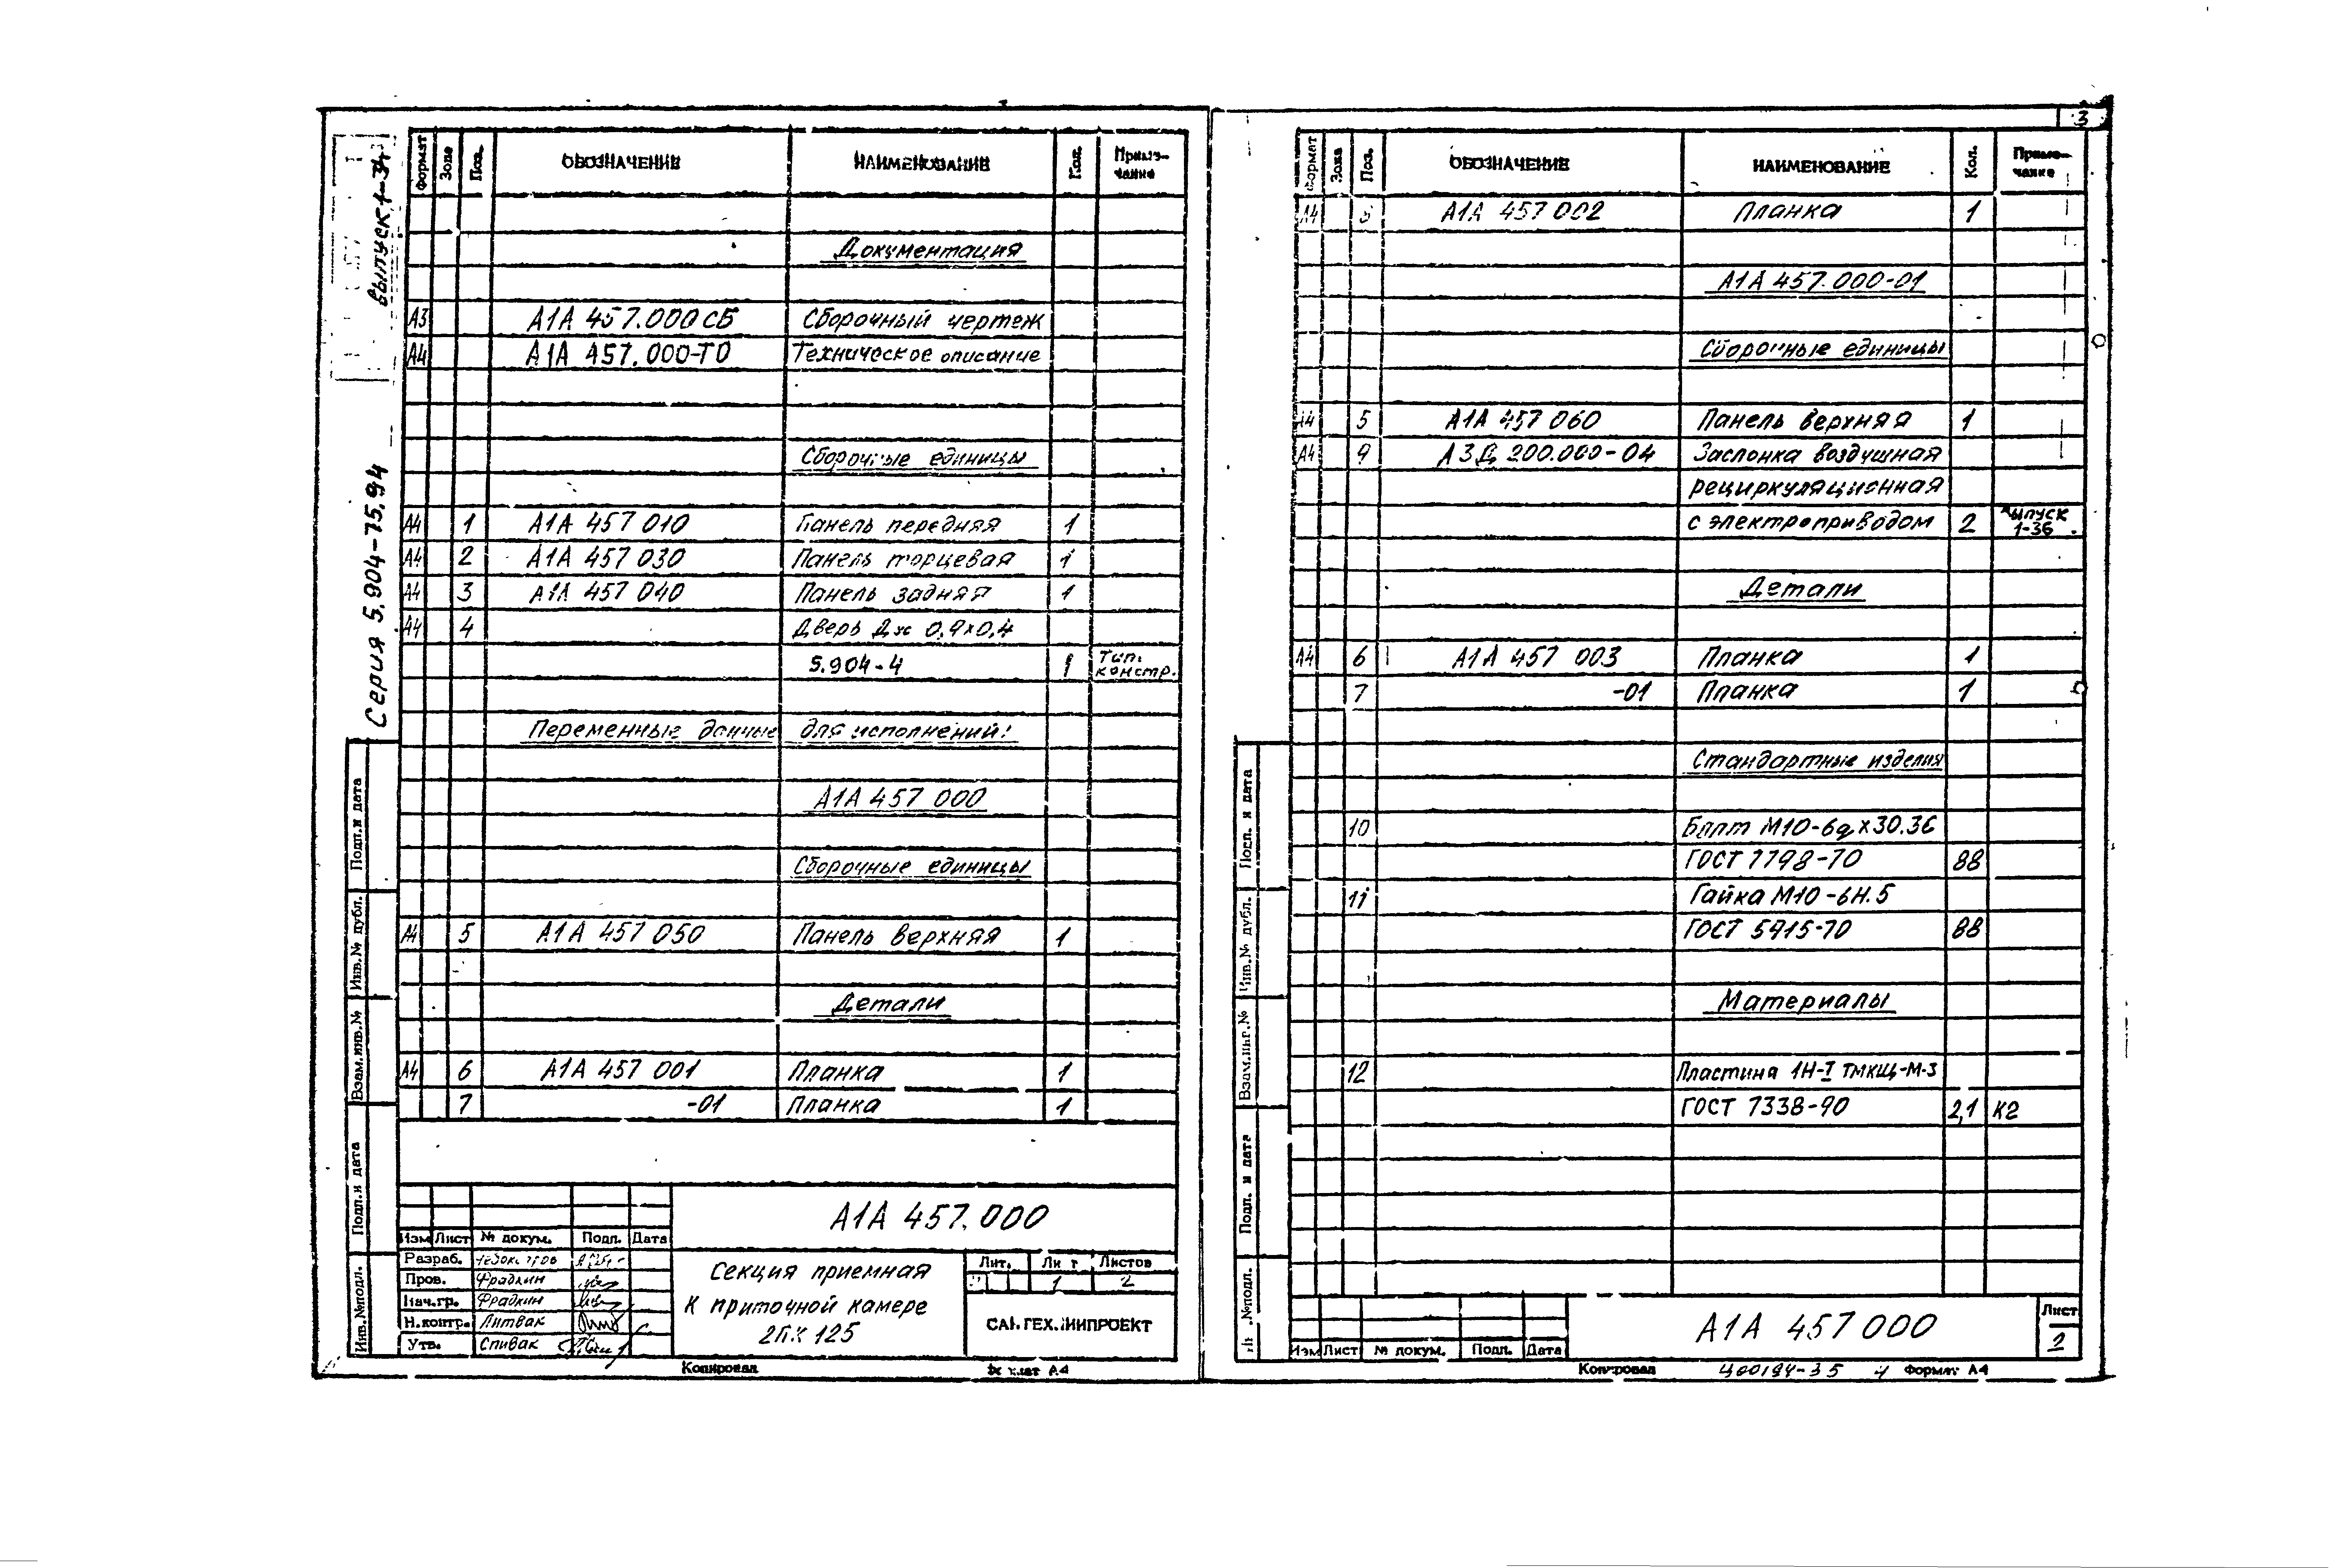 выпуск 1-34
Серия 5.904-75.94
Формат Зона Поз. ОБОЗНАЧЕНИЕ НАИМЕНОВАНИЕ Кол. Приме-
чание
Документация
А3 А1А 457.000СБ Сборочный чертеж
А4 А1А 457.000-ТО Техническое описание
Сборочные единицы
А4 1 А1А 457 010 Панель передняя 1
А4 2 А1А 457 030 Панель торцевая 1
А4 3 А1А 457 040 Панель задняя 1
А4 4 Дверь Дж 0,9×0,4
5.904-4 1 Тип. констр.
Переменные данные для исполнений:
А1А 457 000
Сборочные единицы
А4 5 А1А 457 050 Панель верхняя 1
Детали
А4 6 А1А 457 001 Планка 1
7 -01 Планка 1
Подп.и дата
Инв.№ дубл.
Взам.инв.№
Подп.и дата
Инв.№подл.
А1А 457.000
Изм Лист № докум. Подп. Дата
Разраб.
Пров. Фрадкин
Нач.гр. Фрадкин
Н.контр. Литвак
Утв. Спивак
Секция приемная
к приточной камере
2ПК 125
Лит. Листов
1 2
Копировал А4
3
Формат Зона Поз. ОБОЗНАЧЕНИЕ НАИМЕНОВАНИЕ Кол. Приме-
чание
А4 8 А1А 457 002 Планка 1
А1А 457.000-01
Сборочные единицы
А4 5 А1А 457 060 Панель верхняя 1
А4 9 А3Д 200.000-04 Заслонка воздушная
рециркуляционная
с электроприводом 2 Выпуск 1-36
Детали
А4 6 А1А 457 003 Планка 1
7 -01 Планка 1
Стандартные изделия
10 Болт М10-6g×30.36
ГОСТ 7798-70 88
11 Гайка М10-6Н.5
ГОСТ 5915-70 88
Материалы
12 Пластина 1Н-I ТМКЩ-М-3
ГОСТ 7338-90 2,1 К2
Подп. и дата
Инв.№ дубл.
Взам.инв.№
Подп. и дата
№подл.
Изм Лист № докум. Подп. Дата
А1А 457 000
Лист
2
Копировал Ц00194-35 4 Формат А4